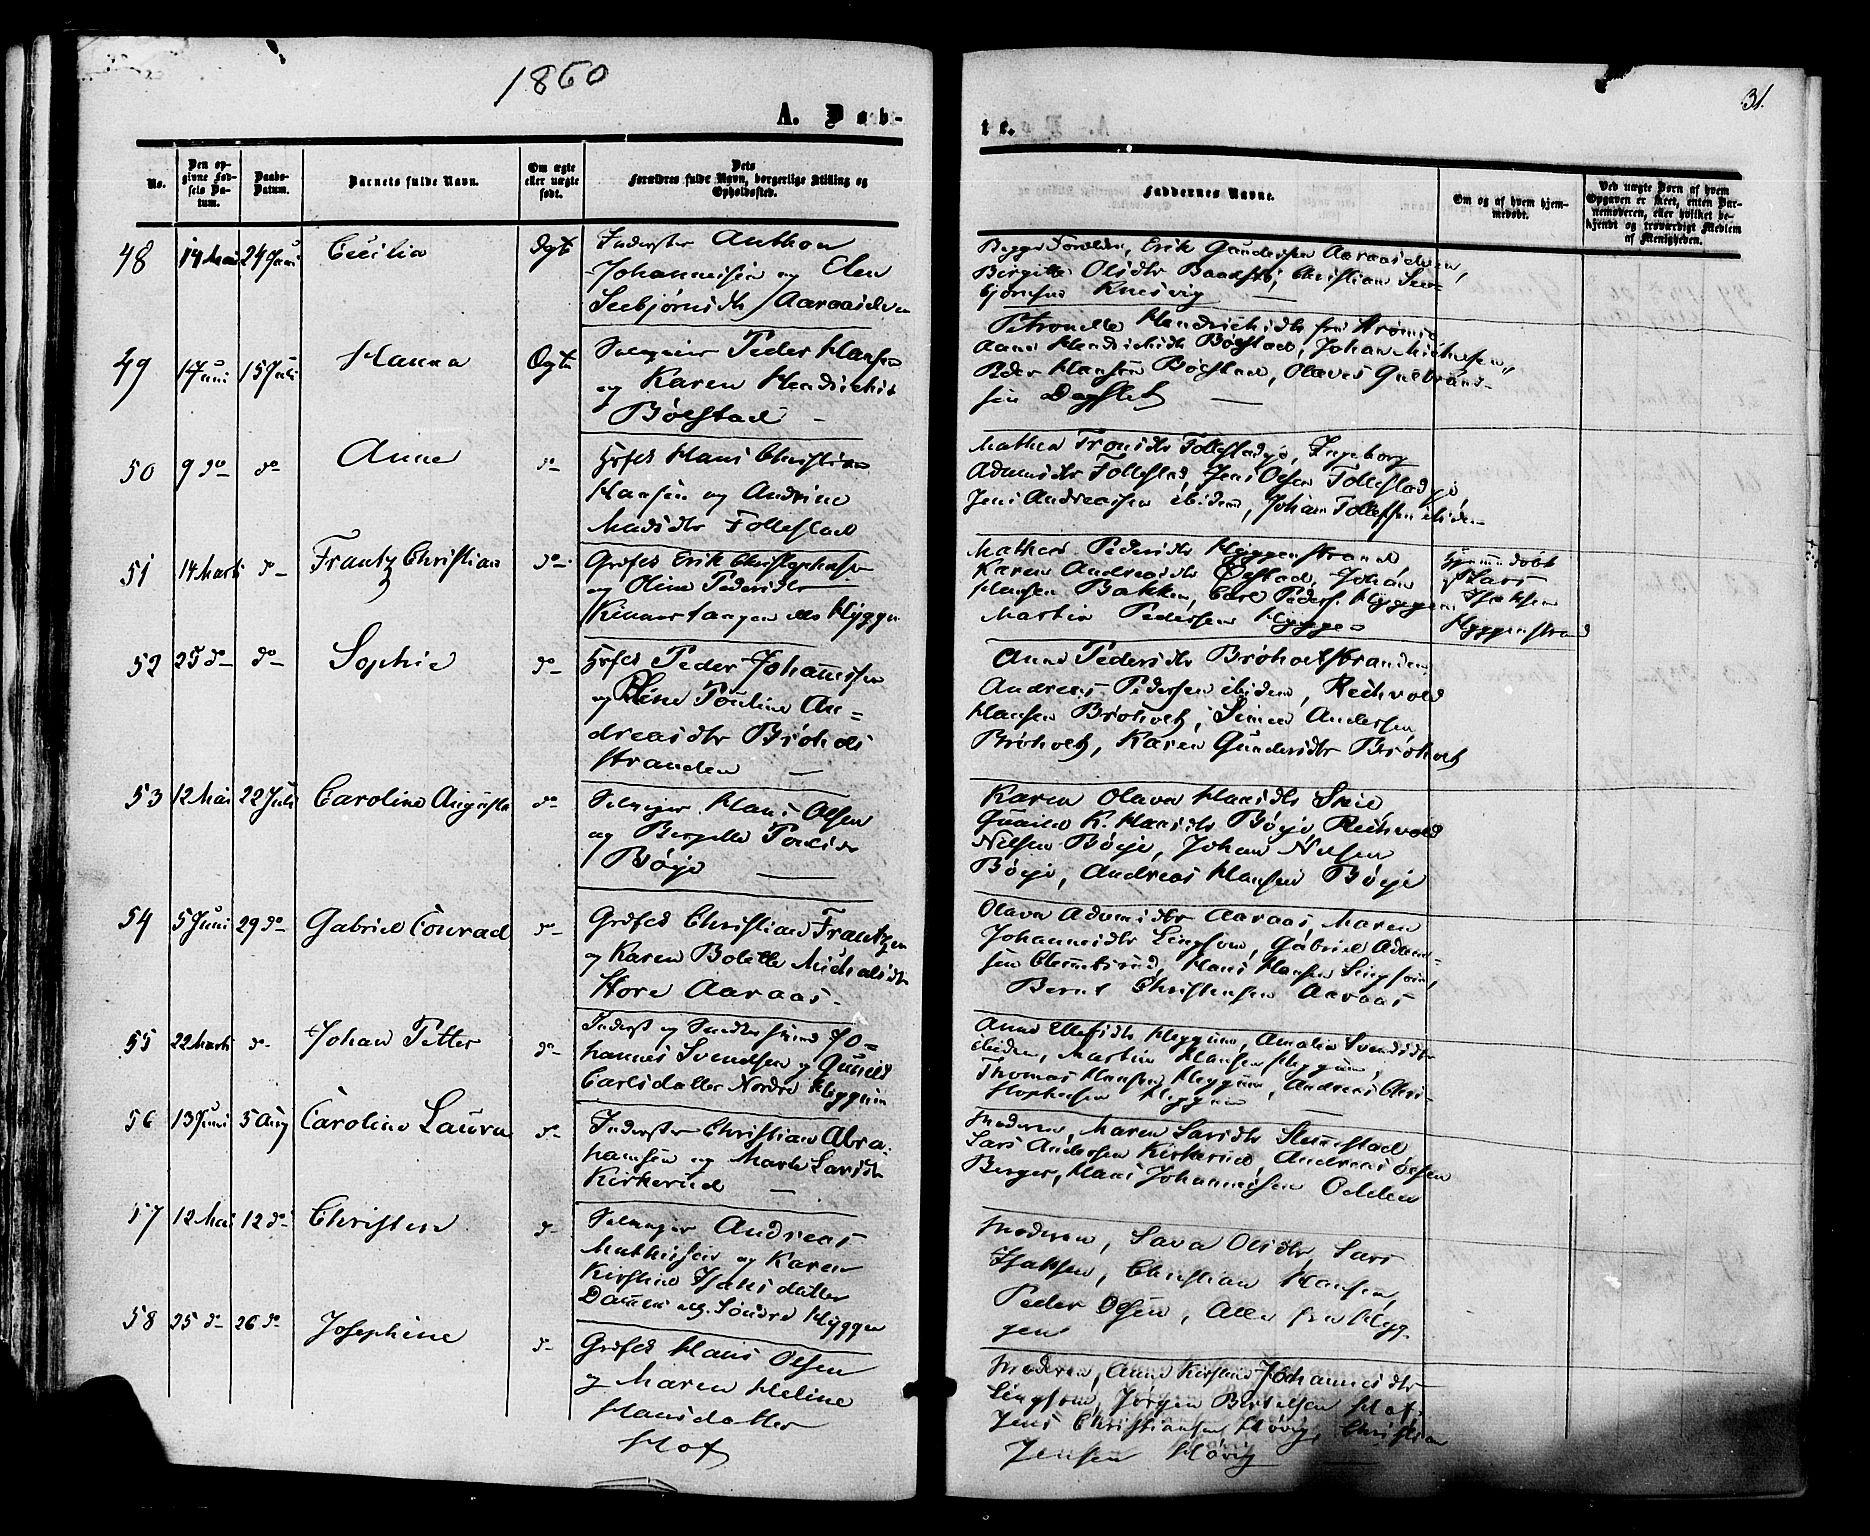 1860
31.
A. Døb-
te.
No.
Den opgivne Fødsels Datum.
Daabs-Datum.
Barnets fulde Navn.
Om ægte eller uægte født.
Dets Forældres fulde Navn, borgerlige Stilling og Opholdssted.
Faddernes Navne.
Om og af hvem hjemmedøbt.
Ved uægte Børn af hvem Opgaven er skeet, enten Barnemoderen, eller hvilket bekjendt og troværdigt Medlem af Menigheden.
48 14 Mai 24 Juni Cecilia Ægte Inderster Anthon
Johannesen og Elen
Seebjørnsdtr Aaraaselven
Begge Forældre, Erik Gundersen Aaraaselven,
Birgitte Olsdtr Baarsti, Christian See-
bjørnsen Knesvig
49 1 Juni 15 Juli Hanna Ægte Selveier Peder Hansen
og Karen Hendrichsdt
Bølstad
Petronelle Hendrichsdtr fra
Anne Hendrichsdtr Bølstad, Johan Michelsen,
Peder Hansen Bølstad, Olaves Gulbrand-
sen Dagslet
50 9 do do Anne do Hans Christian
Hansen og Andrine
Madsdtr Follestad
Mathea Follestad, Ingeborg
Adamsdtr Follestad, Jens Olsen Follestad
Jens Andreassen ibidem, Johan Tollefsen ibidem
51 14 Marts do Frantz Christian do Grdfd Erik Christophersen
og Oline Pedersdtr
Kinnartangen Hyggen
Mathea Pedersdtr Hyggenstrand
Karen Andreasdtr Øvstad, Johan
Hansen Bakken, Carl Peders. Hyggen,
Martin Pedersen Hyggen
Hjemmedøbt
af Lars
Isaksen
Hyggenstrand
52 25 do do Sophie do Peder Johannessen
og Line Pouline An-
dreasdtr Brøholt
stranden
Anne Pedersdtr Brøholtstranden
Andreas Pedersen ibidem, Reihvold
Hansen Brøholt, Simen Andersen
Brøholt, Karen Gundersdtr Brøholt
53 12 Mai 22 Juli Caroline Augusta do Selveier Hans Olsen
og Bergitte Poulsdtr
Bøeje
Karen Olava Hansdtr
K. Hansdtr Bøeje, Reihvold
Nilsen Bøeje, Johan Nilsen
Bøeje, Andreas Hansen Bøeje
54 5 Juni 29 do Gabriel Conrad do Grdfd Christian Frantzen
og Karen Bolette Michelsdtr
Store Aaraas.
Olava Adamsdtr Aaraas, Maren
Johannesdtr Lingsom, Gabriel Adam-
sen Clemmetsrud, Hans Hansen Lingsom,
Bernt Christensen Aaraas
55 22 Marts do Johan Petter do Inderst og Jo-
hannes Svendsen og Gunild
Carlsdatter Nordre Heggum
Anne Ellefsdtr Heggum, Amalia Svendsdtr
ibidem, Martin Hansen Heggum,
Thomas Hansen Heggum, Andreas Chri-
stophersen Heggum
56 13 Juni 5 Aug Caroline Laura do Inderster Christian Abra-
hamsen og Marte Larsdtr
Kirkerud
Moderen, Maren Larsdtr
Lars Andersen Kirkerud, Andreas Olsen
Berger, Hans Johannesen Odden
57 12 Mai 12 do Christen do Selveier Andreas
Mathisen og Karen
Kirstine Isaksdatter
Dammen Søndre Hyggen
Moderen, Sara Olsdtr, Lars
Isaksen, Christian Hansen,
Peder Olsen, Alle fra Hyg-
gen
58 25 do 26 do Josephine do Grdfd Hans Olsen
og Maren Heline
Hansdatter
Hof
Moderen, Anne Kirstine Johannesdtr
Lingsom, Jørgen Bertelsen Hof,
Jens Christiansen Høvig, Christian
Jensen Høvig